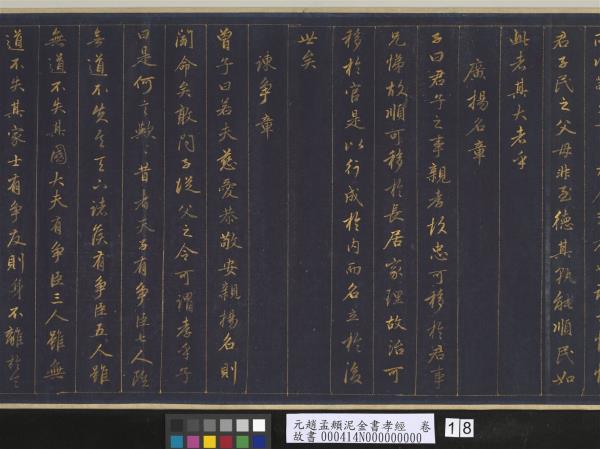 君子民之父母非至德其孰能順民如
此者其大者乎
廣揚名章
子曰君子之事親孝故忠可移於君事
兄悌故順可移於長居家理故治可
移於官是以行成於内而名立於後
世矣
諫争章
曾子曰若夫慈愛恭敬安親揚名則
聞命矣敢問子從父之令可謂孝乎子
曰是何言歟昔者天子有争臣七人雖
無道不失天下諸侯有争臣五人雖
無道不失其國大夫有争臣三人雖無
道不失其家士有争友則身不離於令
元趙孟頫泥金書孝經 卷
故書 000414N000000000
18